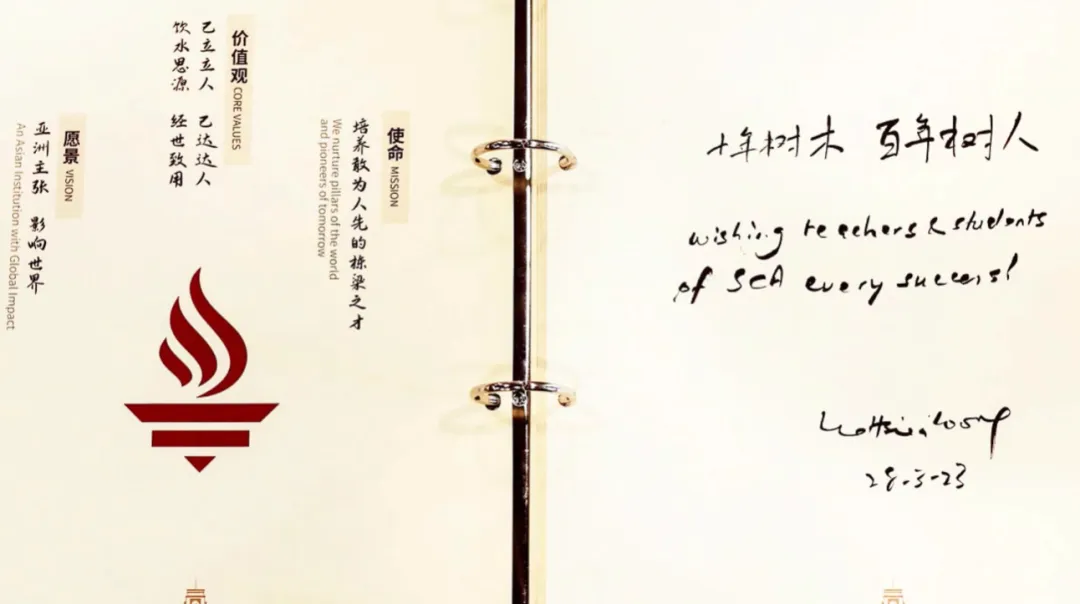 使命 MISSION
培养敢为人先的栋梁之才
We nurture pillars of the world
and pioneers of tomorrow
价值观 CORE VALUES
己立立人 己达达人
饮水思源 经世致用
愿景 VISION
亚洲主张 影响世界
An Asian Institution with Global Impact
十年树木 百年树人
wishing teachers & students
of SCA every success!
Lee Hsien Loong
28-3-23